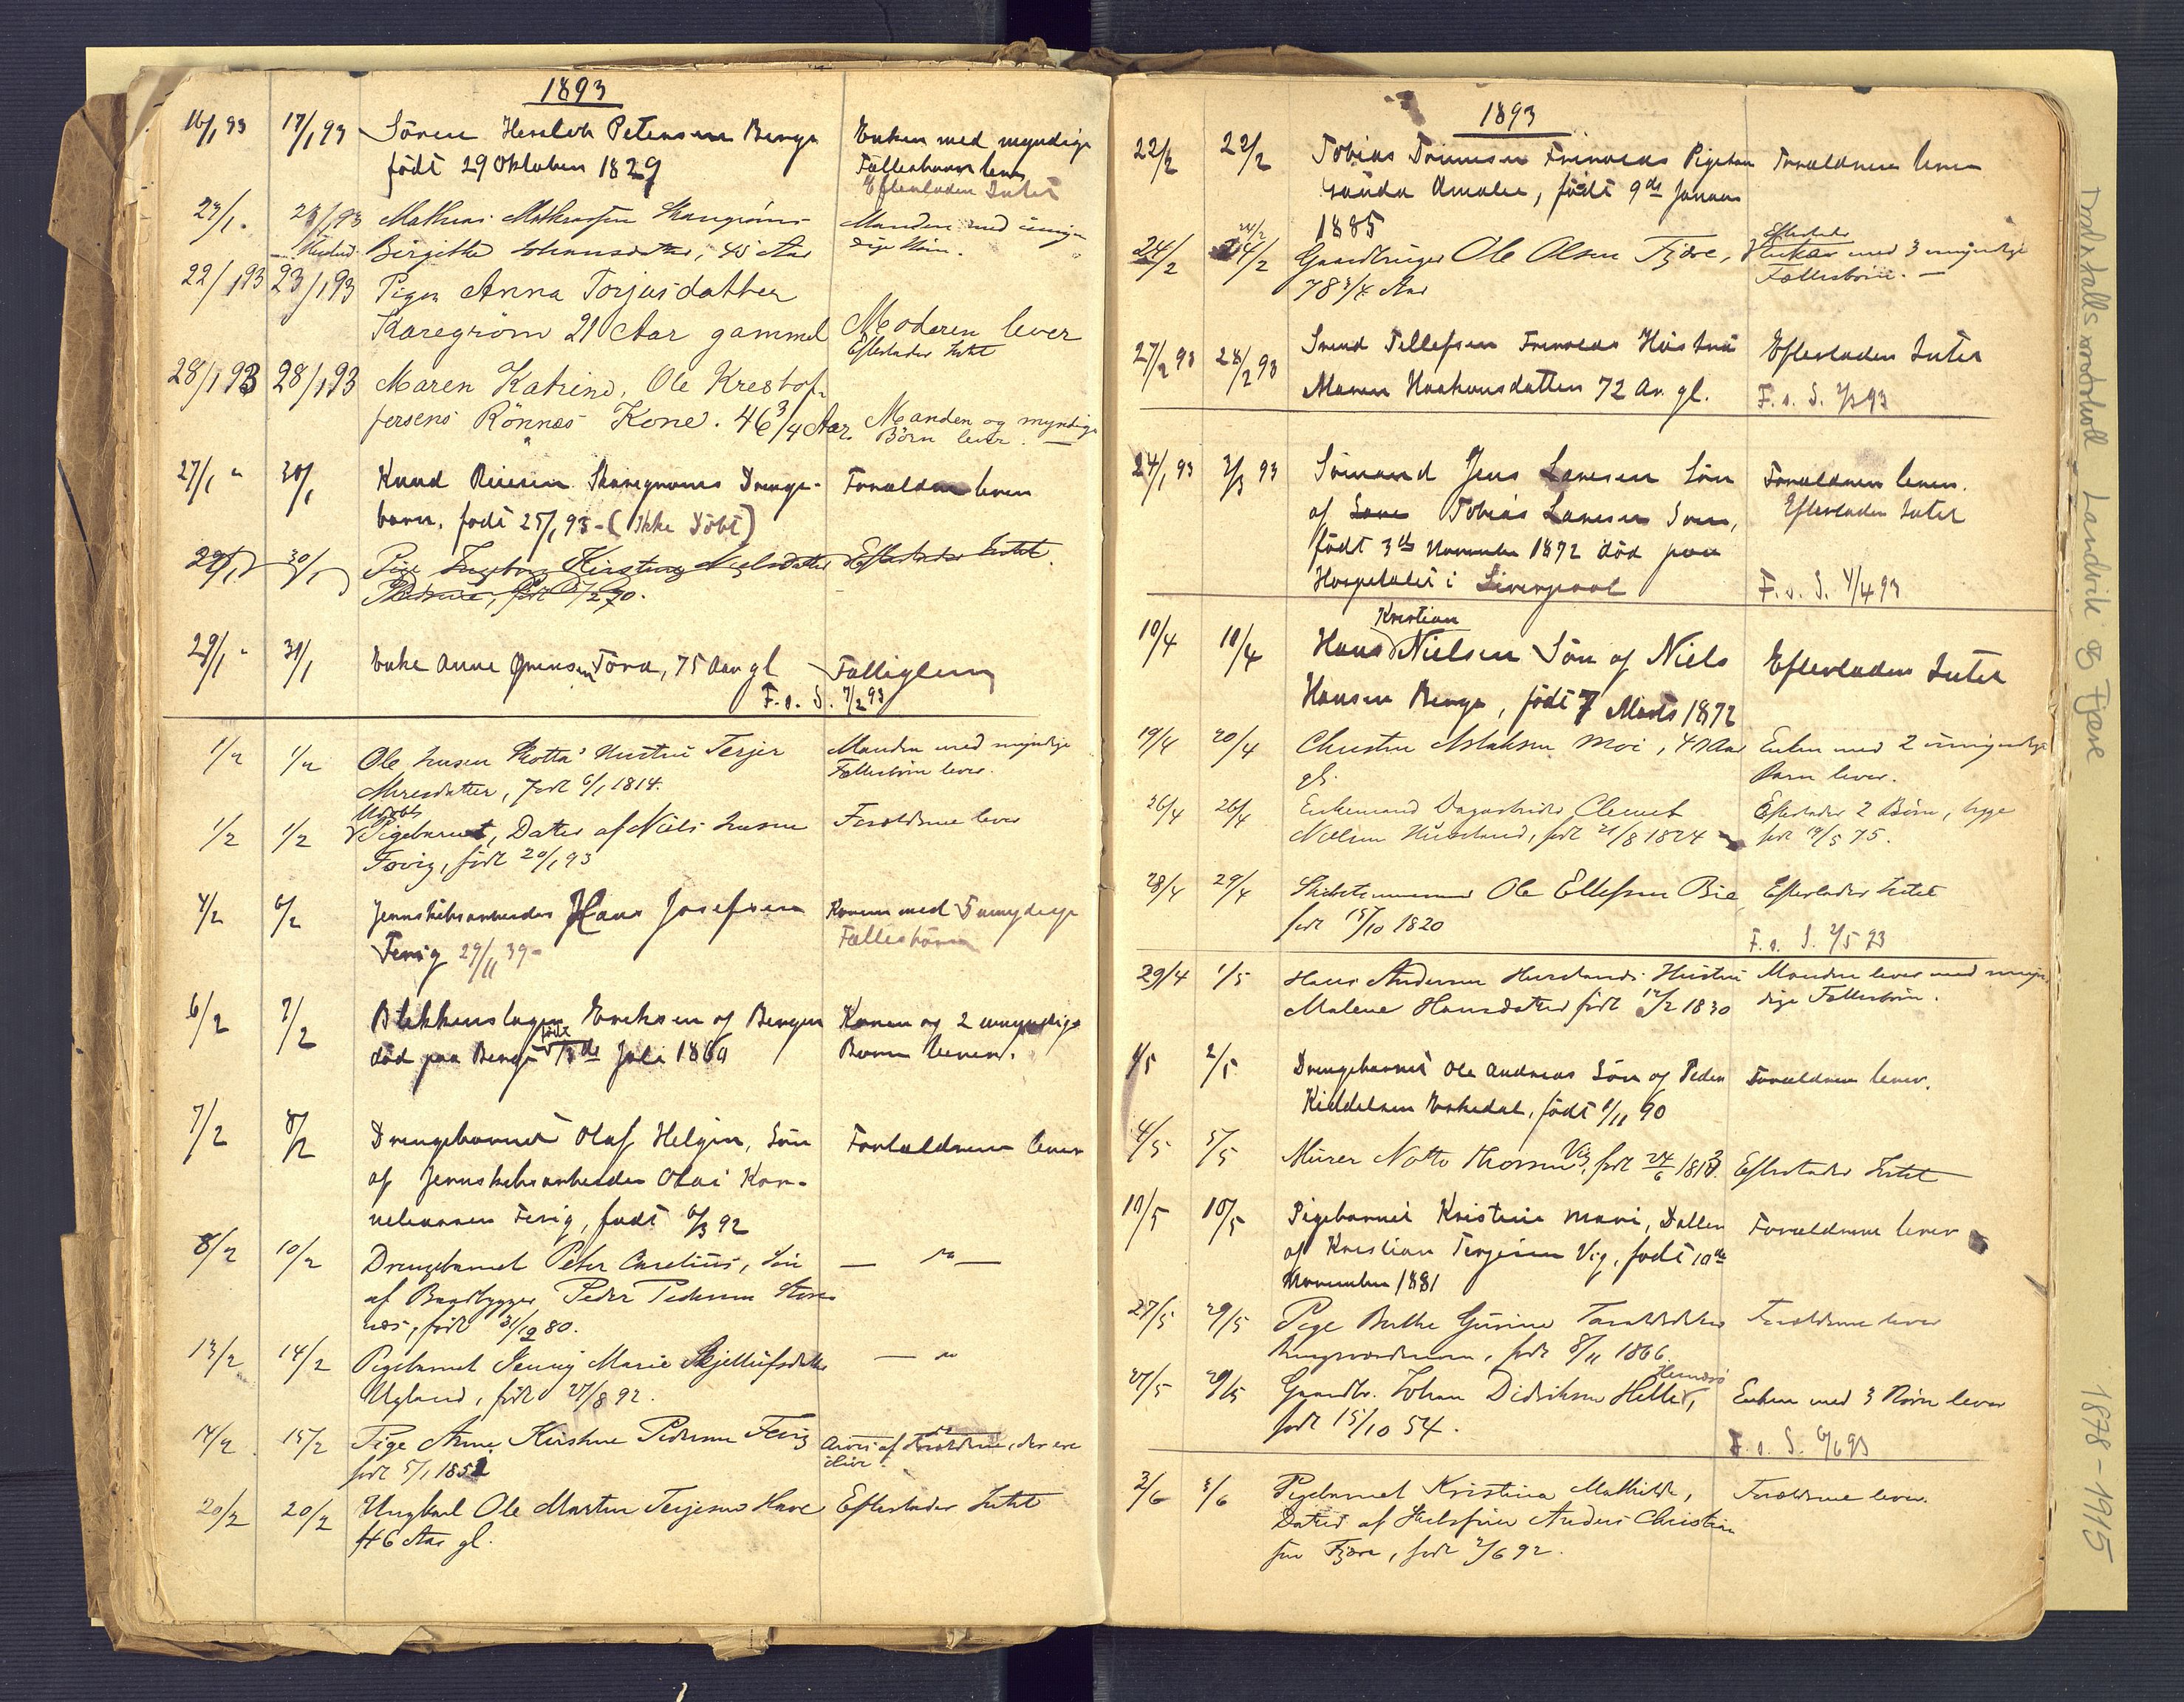 1893
16/1 93 17/1 93 Sören Petersen Berge Enken med myndige
född 29 Oktober 1829 Fællesbørn lever
Efterlader Intet
23/1 23/1 93 Mathias Skaregröms Manden med umyn
Birgitte Johansdatter, 45 Aar dige Börn.
22/1 93 23/1 93 Pigen Anna Torjusdatter
Skaregröm 21 Aar gammel Moderen lever
Efterlader Intet
28/1 93 28/1 93 Maren Katrine, Ole Krestof-
fersens Rönnes Kone. 46 3/4 Aar. Manden og myndige
Börn lever.
27/1 " 30/1 Knud Skaregröms Drenge- Forældre lever
barn. født 25/1 93 - (Ikke Döbt)
29/1 30/1 Pige Ingeborg Kirstine Nielsdatter Efterlader Intet.
29/1 " 31/1 Enke Anne Jensen Törå, 75 Aar gl Fattiglem
F. o. S. 7/2 93
1/2 1/2 Ole Hustru Terjer Manden med myndige
födt 6/1 1814. Fællesbörn lever.
Udöbt
1/2 1/2 Pigebarnet, Datter af Niels Forældrene lever
født 20/1 93
4/2 6/2 Jernskibsarbeider Hans Josefsen Konen med 5 umyndige
Fevig 29/11 39- Fællesbörn
6/2 7/2 Blikkenslager Eriksen af Bergen Konen og 2 umyndige
födt
död paa Berge Juli 1860 Börn lever.
7/2 8/2 Drengebarnet Olaf Helgin, Sön Forældrene lever
af Jernskibsarbeider Olai Kor-
neliussen Fevig, født 6/3 92
8/2 10/2 Drengebarnet Peter Carelius, Sön — " —
af Baadbygger Peder Pedersen Stores
nes, født 31/12 80.
13/2 14/2 Pigebarnet Jenny Marie Skjellufsdatter — "
Ugland, født 27/8 92.
14/2 15/2 Pige Anne Kirstine Pedersen Fevig Arves af Forældrene, der ere
født 5/1 1852 ilive.
20/2 20/2 Ungkarl Ole Martin Terjesen Have Efterlader Intet
46 Aar gl.
1893
22/2 22/2 Tobias Tönnesen Frivolds Pigebarn Forældrene lever
Amalie, født 9de Januar
1885
24/2
24/2 24/2 Gaardbruger Ole Olsen Fjære, Efterlader
med 3 myndige
78 3/4 Aar Fællesbörn. —
27/2 93 28/2 93 Svend Tellefsen Frivolds Hustru Efterlader Intet
Maren Haakonsdatter 72 Aar gl. F. o. S. 1/3 93
24/1 93 3/3 93 Sömand Jens Larsen Sön Forældrene lever.
af Tobias Larsen Efterlader Intet
født 3de November 1872 död paa
Hospitalet i Liverpool F. o. S. 4/4 93
Kristian
10/4 11/4 Hans Nielsen Sön af Niels Efterlader Intet
Hansen Berge, født 7 Marts 1872
19/4 20/4 Christen Aslaksen Moi, Aar Enken med 2 umyndige
gl. Barn lever.
26/4 26/4 Enkemand Dagarbeider Clemet Efterlader 2 Börn, begge
Nielsen født 21/8 1824 født 19/5 75.
28/4 29/4 Skibstömmermand Ole Ellefsen Bie Efterlader Intet
født 15/10 1820
F. o. S. 2/5 93
29/4 1/5 Hans Andersen Hustru Manden lever med myn
Malene Hansdatter født 12/2 1830 dige Fællesbörn.
1/5 2/5 Drengebarnet Ole Andreas Sön af Peder Forældrene lever.
Kiddelsen Eskedal, født 1/11 90
4/5 5/5 Murer Notto Thorsen Vig, født 24/6 Efterlader Intet
10/5 10/5 Pigebarnet Kristine Marie, Datter Forældrene lever
af Kristian Terjesen Vig, født 10de
November 1881
27/5 29/5 Pige Berthe Gurine Taraldsdatter Forældrene lever
født 8/11 1866
27/5 29/5 Gaardbr. Johan Didriksen Helle, Enken med 3 Börn lever
født 15/10 54.
F. o. S. 6/6 93
3/6 3/6 Pigebarnet Kristina Mathilde, Forældrene lever.
Datter af Anders Christian
sen Fjære, født 2/6 92.
Dødsfallsprotokoll Landvik og Fjære 1878-1915